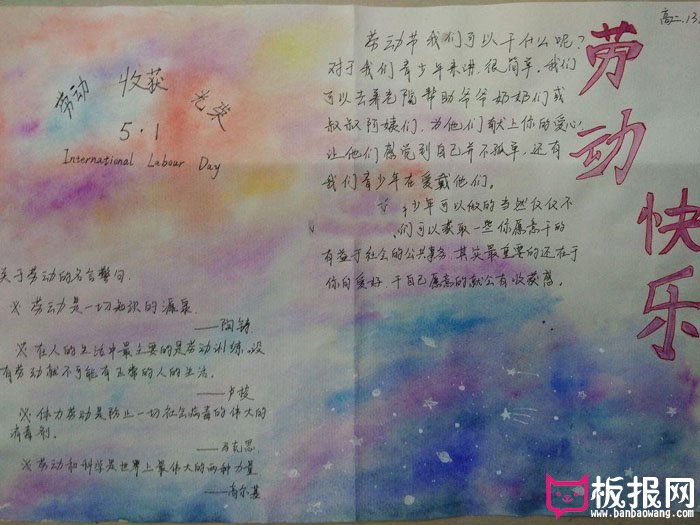 劳动 收获 光荣
5·1
International Labour Day
关于劳动的名言警句.
※ 劳动是一切知识的源泉
——陶铸
※ 在人的生活中最主要的是劳动训练,没
有劳动就不可能有正常的人的生活。
——卢梭
※ 体力劳动是防止一切社会病毒的伟大的
消毒剂。
——马克思
※ 劳动和科学是世界上最伟大的两种力量
——高尔基
高二.13.
劳动快乐
劳动节我们可以干什么呢?
对于我们青少年来讲,很简单,我们
可以去养老院帮助爷爷奶奶们或
叔叔阿姨们,为他们献上你的爱心
让他们感觉到自己并不孤单,还有
我们青少年在爱戴他们。
少年可以做的当然仅仅不
们可以获取一些你愿意干的
有益于社会的公共事务,其实最重要的还在于
你的爱好,干自己愿意的就会有收获感.
板报网
www.banbaowang.com